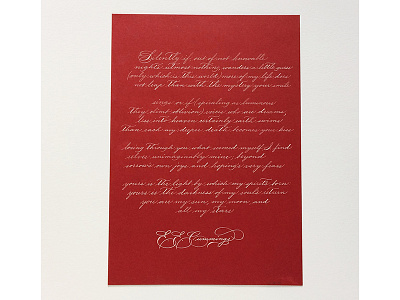 Silently if, out of not knowable
night's utmost nothing, wanders a little guess
(only which is this world) more my life does
not leap than with the mystery your smile
sings or if (spiraling as luminous
they climb oblivion) voices who are dreams,
less into heaven certainly earth swims
than each my deeper death becomes your kiss
losing through you what seemed myself, I find
selves unimaginably mine; beyond
sorrow's own joys and hoping's very fears
yours is the light by which my spirit's born
yours is the darkness of my soul's return
you are my sun, my moon, and
all my stars
E.E. Cummings